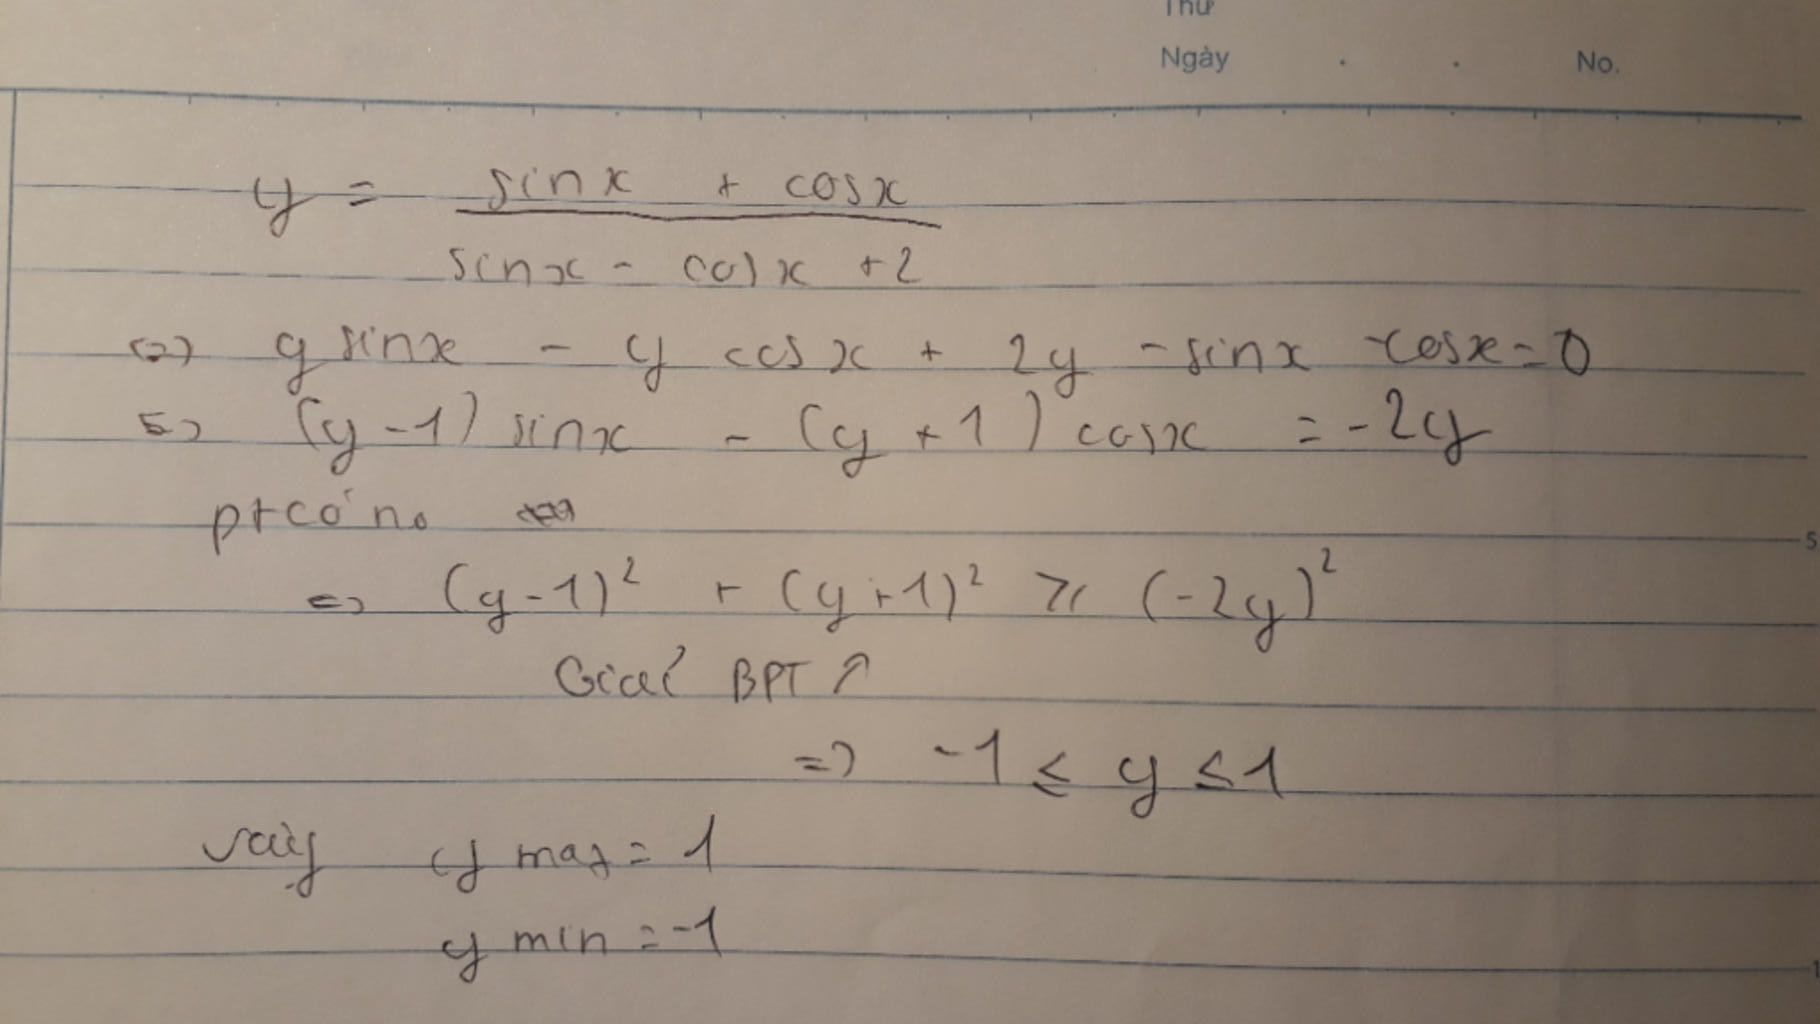 Thứ
Ngày . . No.
y = sinx + cosx
sinx - cosx + 2
<=> y sinx - y cosx + 2y - sinx - cosx = 0
<=> (y - 1) sinx - (y + 1) cosx = -2y
pt có no
<=> (y-1)² + (y+1)² ≥ (-2y)²
5
Giải BPT ↑
=> -1 ≤ y ≤ 1
vậy y max = 1
y min = -1
1